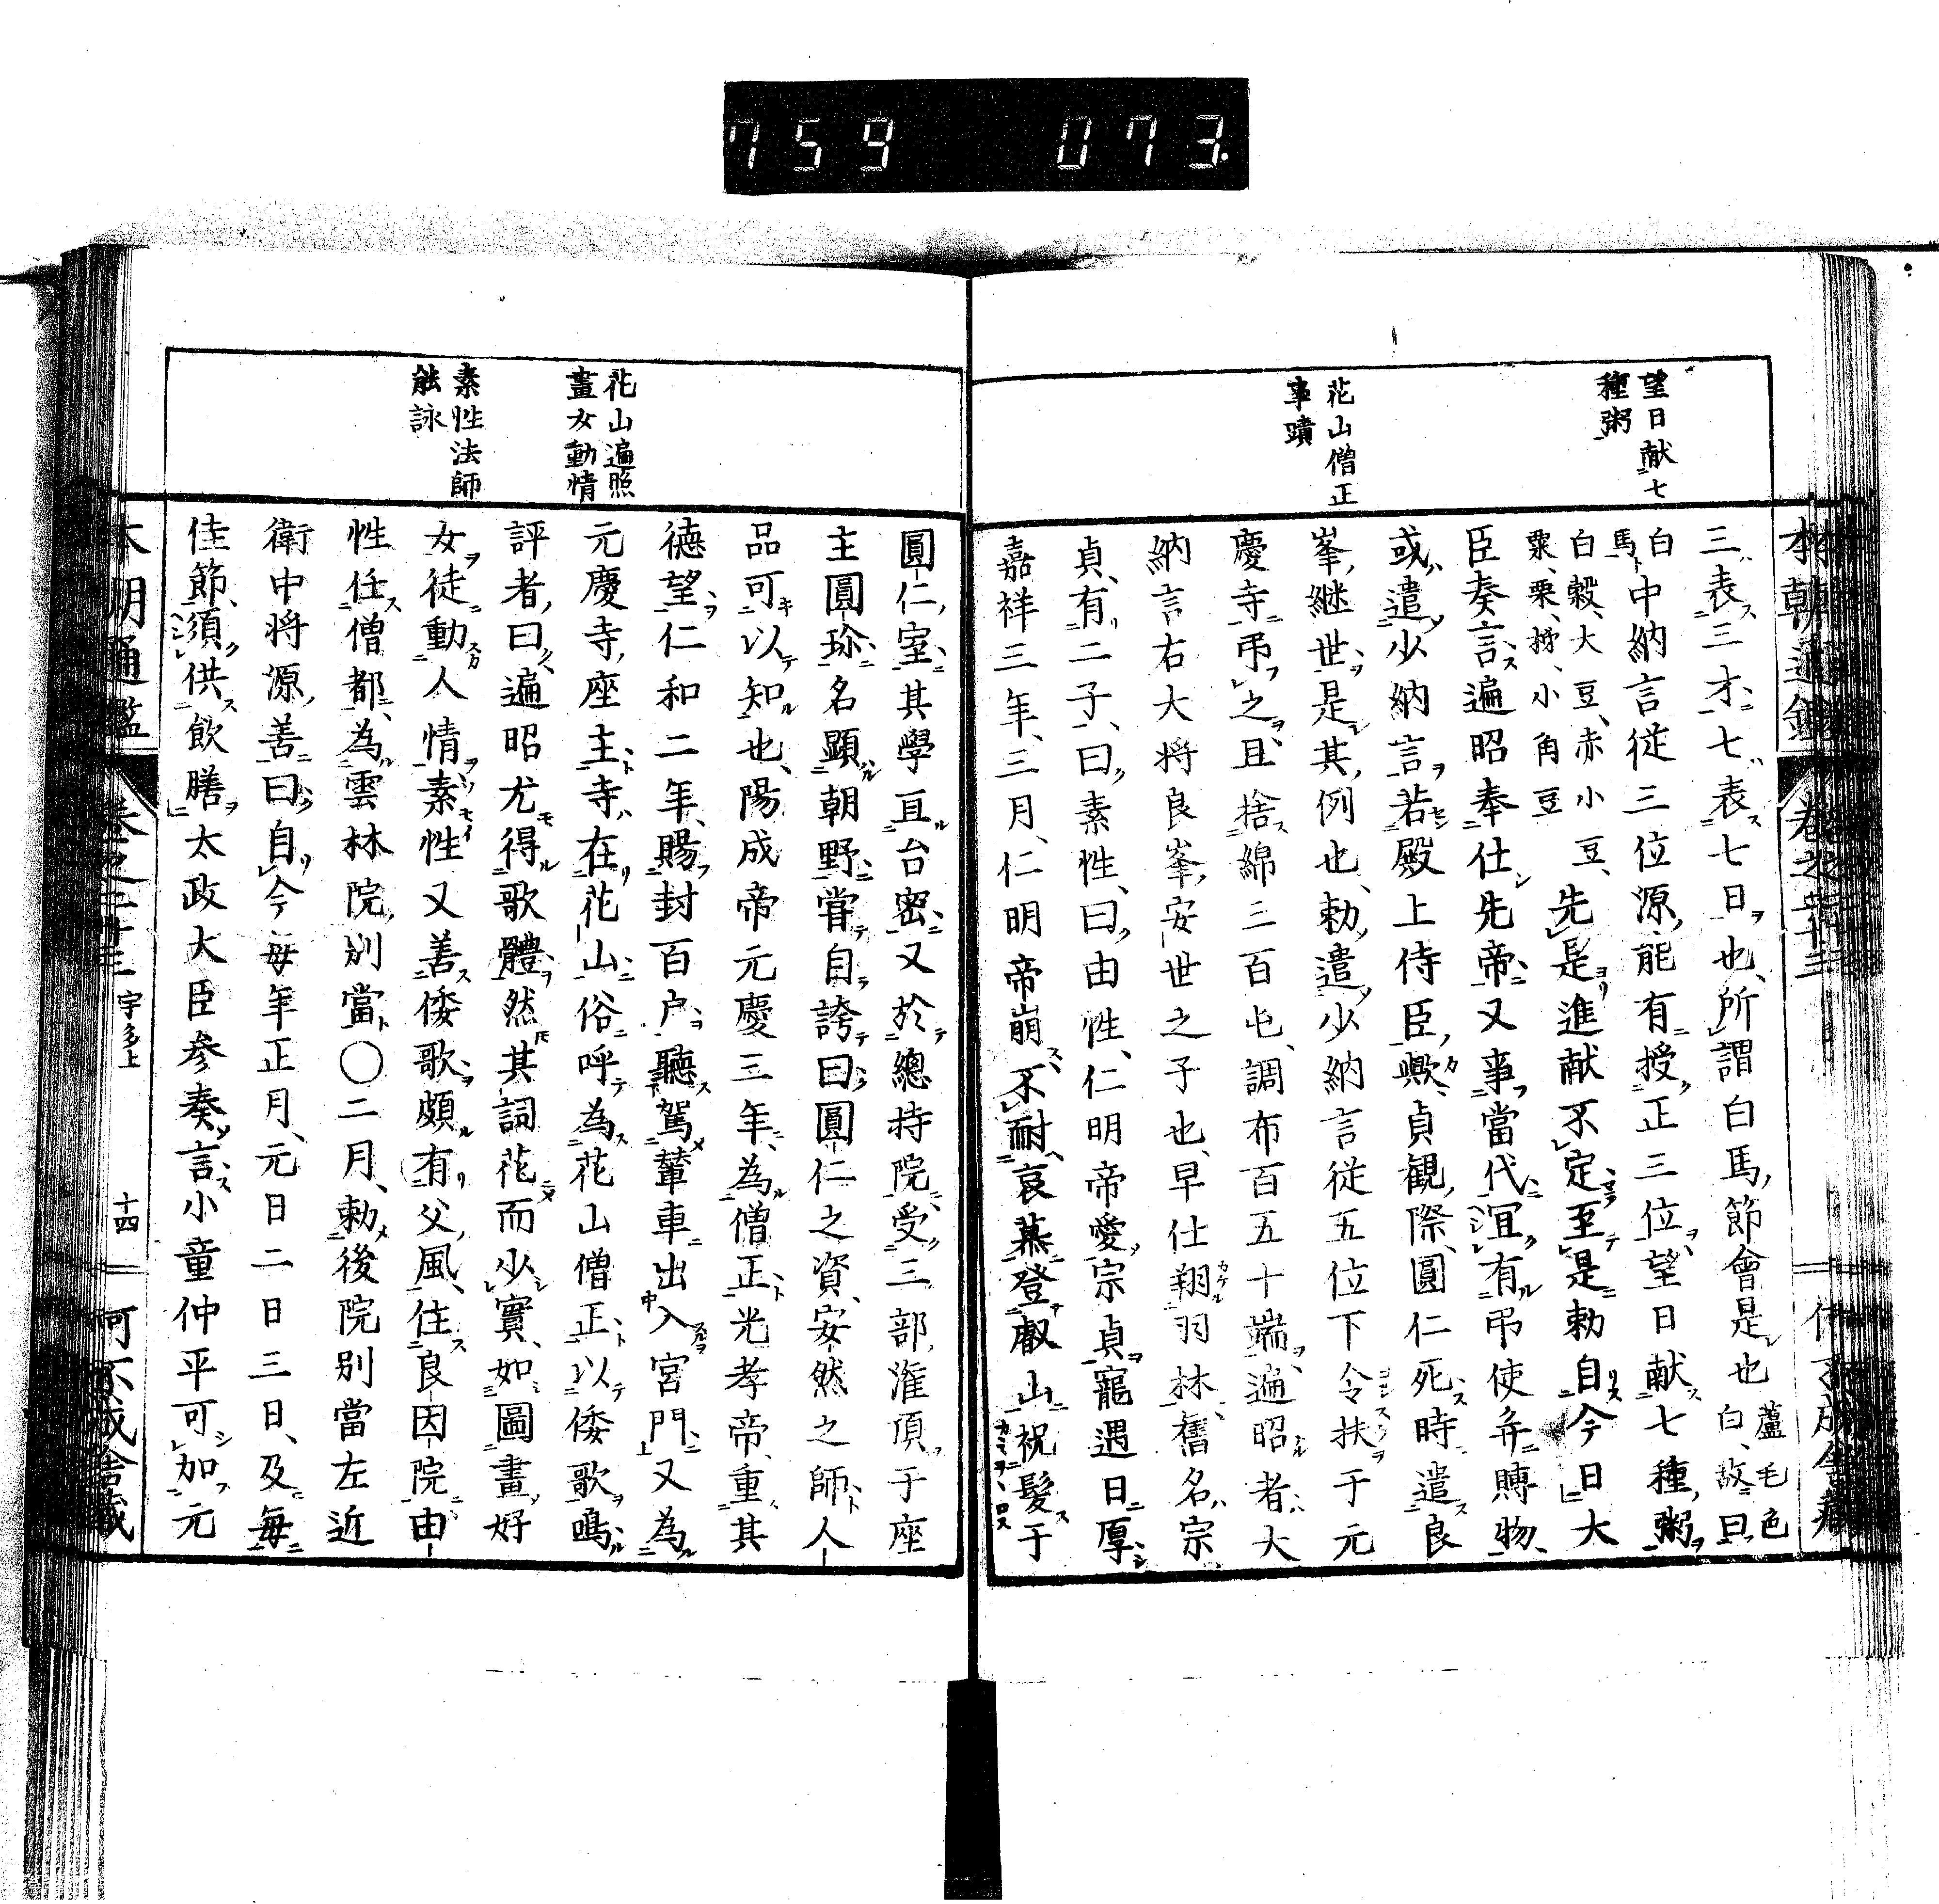 759 073
望日献七
種粥
花山僧正
事蹟
三表三才七表七日也所謂白馬節會是也蘆毛色
白故曰
白馬
中納言従三位源能有授正三位望日献七種粥
白穀大豆赤小豆
粟栗
小角豆
先是進献不定至是勅自今日大
臣奏言遍昭奉仕先帝又事當代宜有弔使弁賻物
或遣少納言若殿上侍臣歟貞観際圓仁死時遣良
峯継世是其例也勅遣少納言従五位下令扶于元
慶寺弔之且捨綿三百屯調布百五十端遍昭者大
納言右大将良峯安世之子也早仕翔羽林舊名宗
貞有二子曰素性曰由性仁明帝愛宗貞寵遇日厚
嘉祥三年三月仁明帝崩不耐哀慕登叡山祝髪于
花山遍照
畫女動情
素性法師
能詠
圓仁室其學亘台密又於總持院受三部潅頂于座
主圓珍名顯朝野甞自誇曰圓仁之資安然之師人
品可以知也陽成帝元慶三年為僧正光孝帝重其
徳望仁和二年賜封百户聽駕輦車出入宮門又為
元慶寺座主寺在花山俗呼為花山僧正以倭歌鳴
評者曰遍昭尤得歌體然其詞花而少實如圖畫好
女徒動人情素性又善倭歌頗有父風住良因院由
性任僧都為雲林院別當〇二月勅後院別當左近
衛中将源善曰自今毎年正月元日二日三日及毎
佳節須供飲膳太政大臣参奏言小童仲平可加元
本朝通鑑 巻之二十三 宇多上 十四 何不成舎蔵